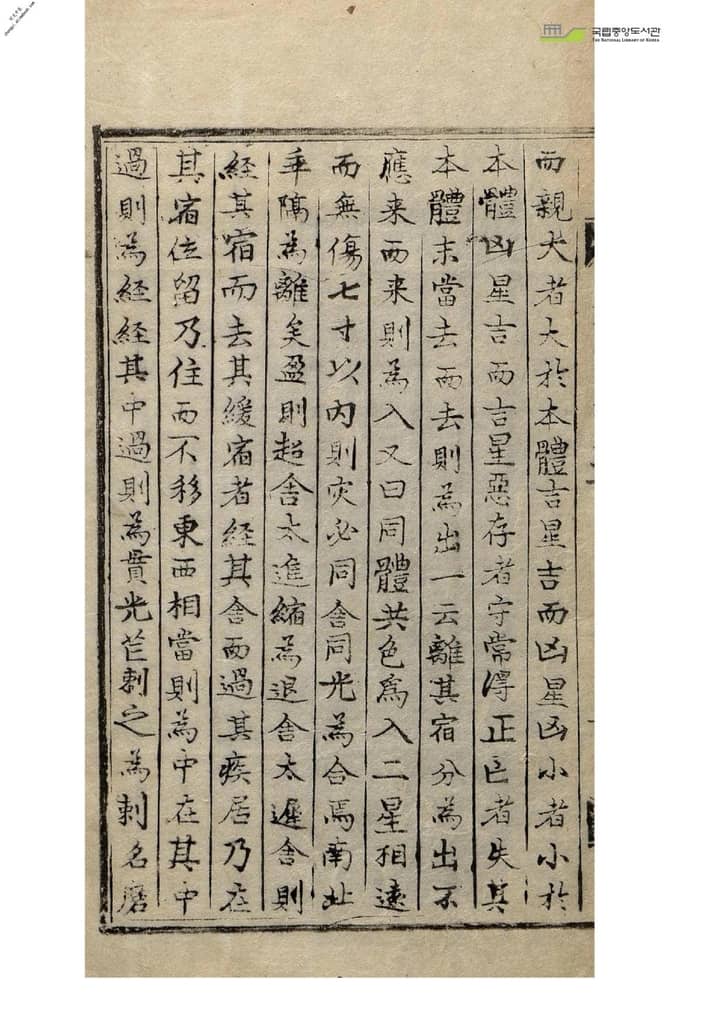 而親大者大於本體吉星吉而凶星凶小者小於
本體凶星吉而吉星惡存者守常得正亡者失其
本體未當去而去則為出一云離其宿分為出不
應来而来則為入又曰同體共色為入二星相遠
而無傷七寸以內則灾必同舍同光為合焉南北
乖隔為離矣盈則超舍太進縮為退舍太遲舍則
経其宿而去其緩宿者経其舍而過其疾居乃在
其宿位留乃住而不移東西相當則為中在其中
過則為経経其中過則為貫光芒刺之為刺名磨
국립중앙도서관
THE NATIONAL LIBRARY OF KOREA